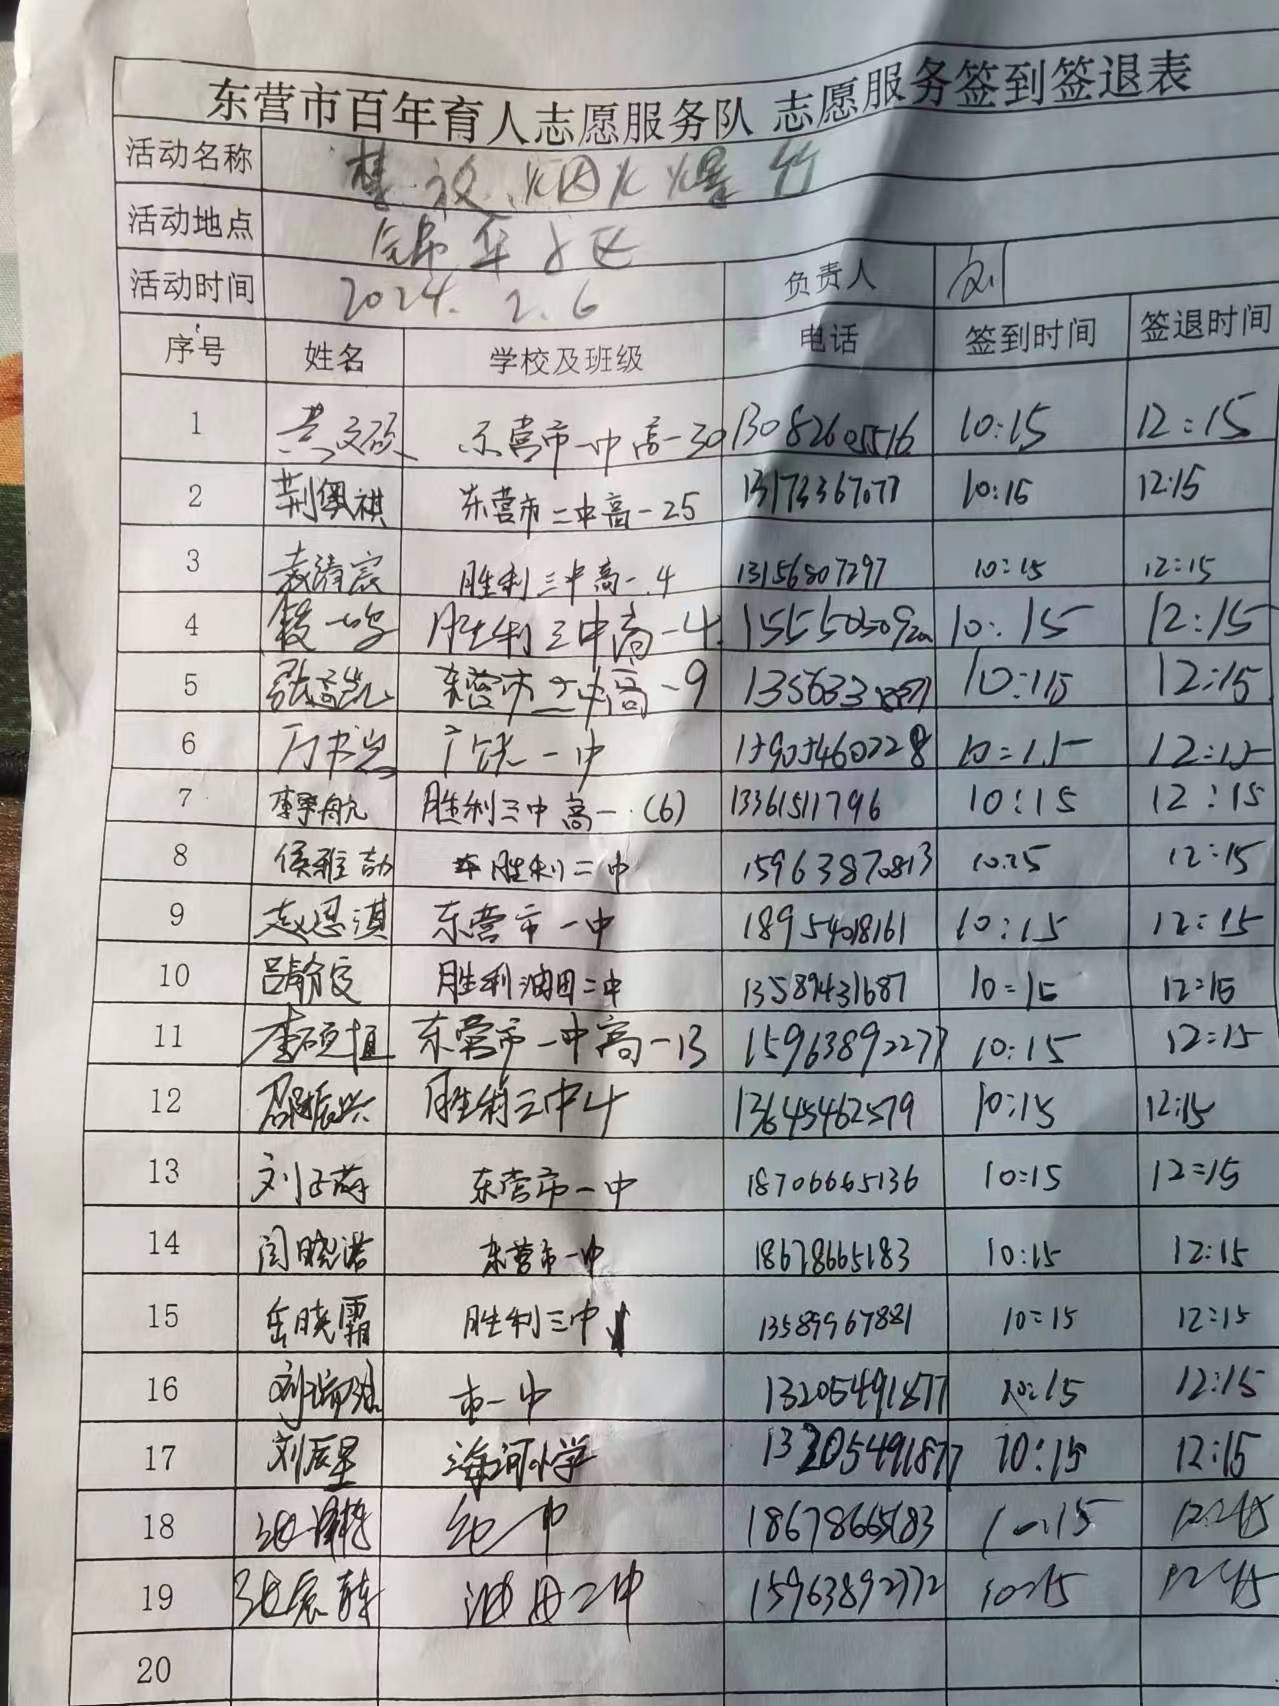 东营市百年育人志愿服务队 志愿服务签到签退表
活动名称 禁放烟火爆竹
活动地点 锦华小区
活动时间 2024.2.6 负责人 刘
序号 姓名 学校及班级 电话 签到时间 签退时间
1 东营市一中高一30 13082605516 10:15 12:15
2 荆佩祺 东营市二中高一25 13173367077 10:15 12:15
3 袁清宸 胜利三中高一.4 13156807297 10:15 12:15
4 胜利三中高一4. 10:15 12:15
5 东营市二中高一9 10:15 12:15
6 万书 一中 15905460228 10:15 12:15
7 李宇航 胜利三中高一(6) 13361511796 10:15 12:15
8 侯雅 胜利二中 15963870813 10:15 12:15
9 赵恩淇 东营市一中 18954018161 10:15 12:15
10 吕静 胜利油田二中 13589431687 10:15 12:15
11 李硕桓 东营市一中高一13 15963892277 10:15 12:15
12 振兴 胜利三中4 13645462579 10:15 12:15
13 刘子蔚 东营市一中 18706665136 10:15 12:15
14 闫晓诺 东营市一中 18678665183 10:15 12:15
15 岳晓霜 胜利三中 13589967881 10:15 12:15
16 刘瑞 市一中 13205491877 10:15 12:15
17 刘辰星 海河小学 13205491877 10:15 12:15
18 中 18678665183 10:15
19 张宸 油田二中 15963892772 10:15
20